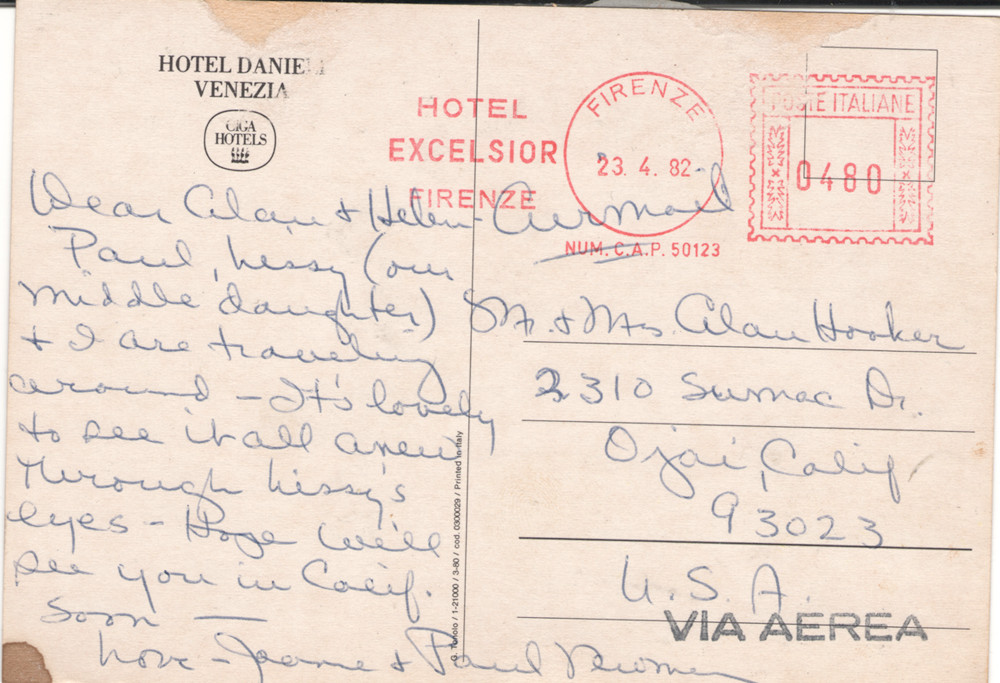 HOTEL DANIELI
VENEZIA
CIGA
HOTELS
HOTEL
EXCELSIOR
FIRENZE
FIRENZE
23. 4. 82
NUM. C.A.P. 50123
POSTE ITALIANE
0480
Dear Alan & Helen-
Paul, Lissy (our
middle daughter)
& I are traveling
around - It's lovely
to see it all anew
through Lissy's
eyes - Hope we'll
see you in Calif.
soon —
Love - Joanne & Paul Newman
Air mail
Mr. & Mrs. Alan Hooker
2310 Sumac Dr.
Ojai, Calif
93023
U.S.A.
VIA AEREA
/ 1-21000 / 3-80 / cod. 0300029 / Printed in Italy